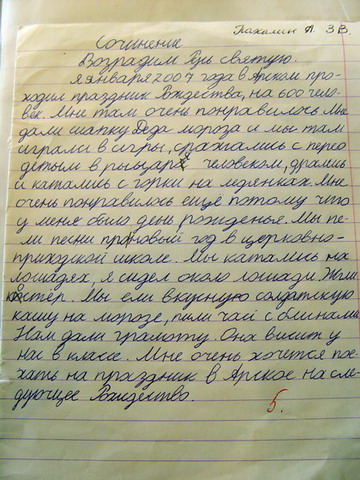 Пахалин А. 3В.
Сочинение
Возрадим Русь святую.
января 2007 года в Арском про-
ходил праздник Рождества, на 600 чело-
век. Мне там очень понравилось. Мне
дали шапку Деда мороза и мы там
играли в игры, сражались с перео
детым в рыцаря человеком, дрались
и катались с горки на ледянках. Мне
очень понравилось еще потому что
у меня было день рожденье. Мы пе-
ли песни про новый год в церковно-
приходской школе. Мы катались на
лошадях, я сидел около лошади. Жгли
костёр. Мы ели вкусную солдатскую
кашу на морозе, пили чай с блинами.
Нам дали грамоту. Она висит у
нас в классе. Мне очень хочется пое-
хать на праздник в Арское на сле-
дующее Рождество.
5.